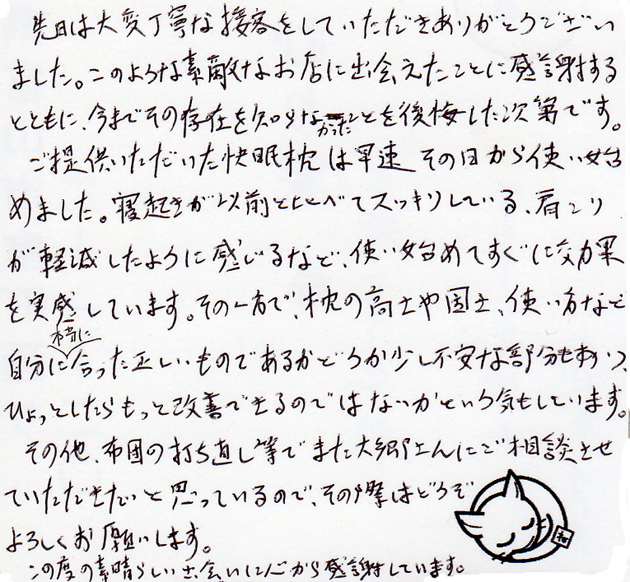 先日は大変丁寧な接客をしていただきありがとうござい
ました。このような素敵なお店に出会えたことに感謝する
とともに、今までその存在を知らなかったことを後悔した次第です。
ご提供いただいた快眠枕は早速その日から使い始
めました。寝起きが以前と比べてスッキリしている、肩こり
が軽減したように感じるなど、使い始めてすぐに効果
を実感しています。その一方で、枕の高さや固さ、使い方など
自分に本当に合った正しいものであるかどうか少し不安な部分もあり、
ひょっとしたらもっと改善できるのではないかという気もしています。
その他、布団の打ち直し等でまた大郷さんにご相談させ
ていただきたいと思っているので、その際はどうぞ
よろしくお願いします。
この度の素晴らしい出会いに心から感謝しています。
和